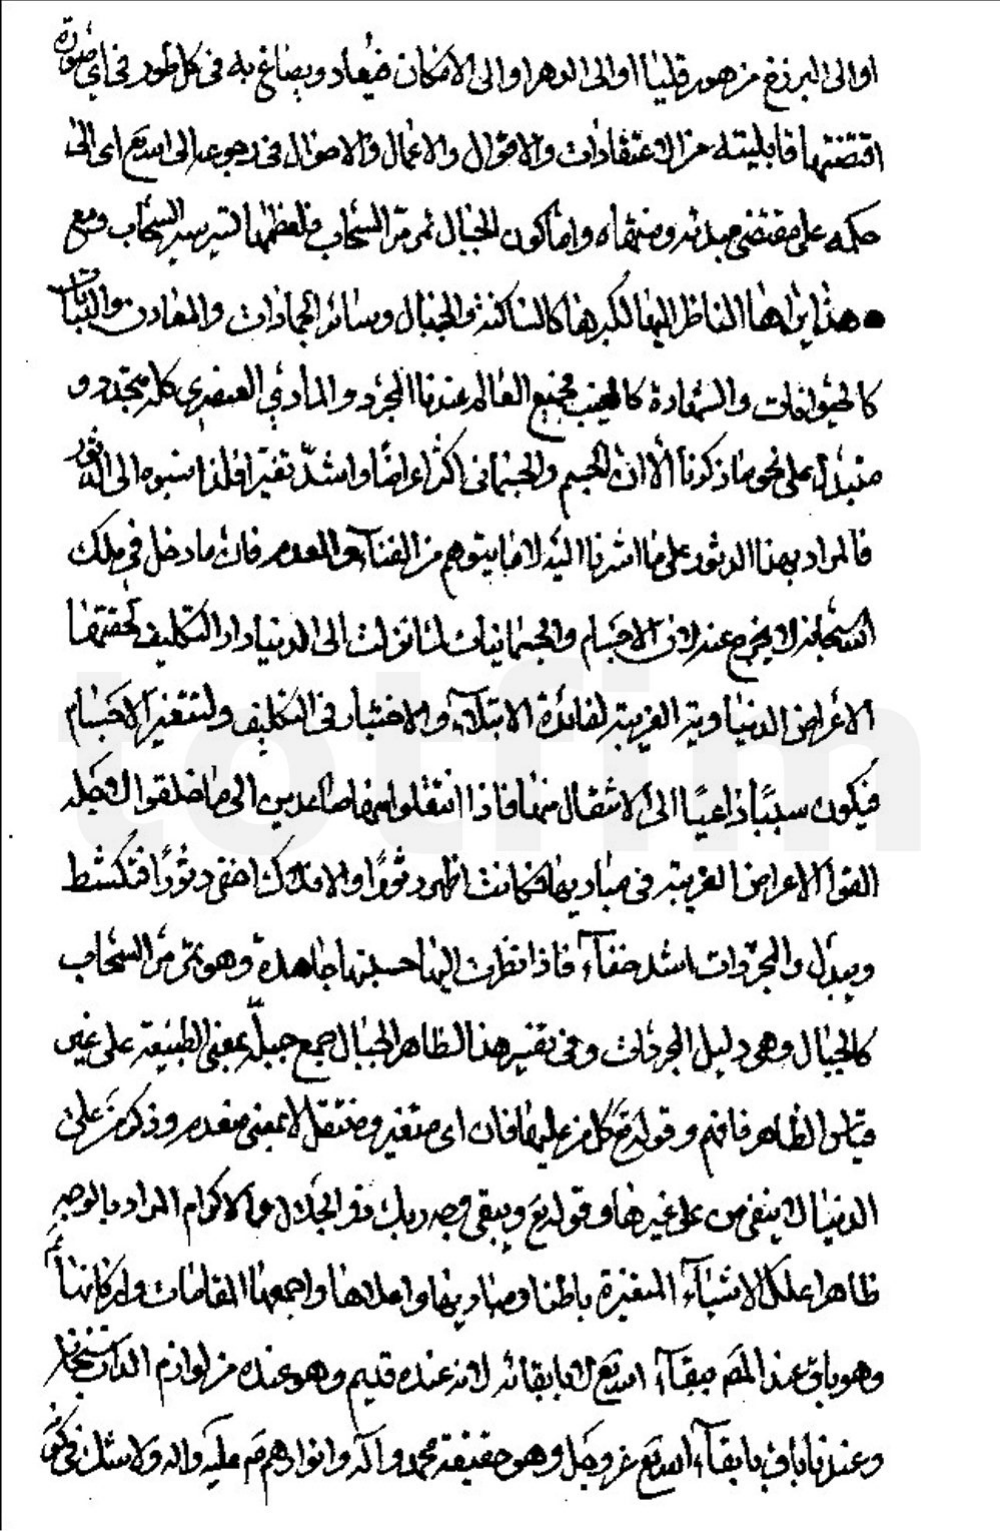 او الى البرزخ من هورقليا او الى الدهر او الى الامكان فيعاد ويصاغ به فى كل طور فى اى صورة
اقتضتها قابليته من الاعتقادات والاقوال والاعمال والاحوال فى رجوعه الى الله تع اى الى
حكمه على مقتضى مبدئه ومنتهاه واما كون الجبال تمر مر السحاب فلعظمها تسير سير السحاب ومع
هذا يراها الناظر اليها لكبرها كالساكنة والجبال وسائر الجمادات والمعادن والنباتات
كالحيوانات والسعادة كالغيب فجميع العالم عندنا المجرد والمادي العنصرى كله متجدد و
متبدل على نحو ما ذكرنا الا ان الجسم والجسمانى اكثر اعراضا واشد تغيرا فلذا نسبوه الى الدثور
فالمراد بهذا الدثور على ما اشرنا اليه لا ما يتوهم من الفناء والعدم فان ما دخل فى ملك
الله سبحانه لا يخرج عنه لان الاجسام والجسمانيات لما نزلت الى الدنيا دار التكليف لحقتها
الاعراض الدنياوية الغريبة لفائدة الابتلاء والاختبار فى التكليف ولتتغير الاجسام
فيكون سببا داعيا الى الانتقال منها فاذا انتقلوا منها صاعدين الى ما خلقوا لاجله
القوا الاعراض الغريبة فى مباديها فكانت اظهر دثورا والافلاك اخفى دثورا فتكشط
وتبدل والمجردات اشد خفاء فاذا نظرت اليها حسبتها جامدة وهو تمر مر السحاب
كالجبال وهى دليل المجردات وفى تفسير هذا الظاهر الجبال جمع جبلّة بمعنى الطبيعة على غير
قياس الظاهر فافهم وقوله تع كل من عليها فان اى متغير ومنتقل لا بمعنى منعدم وذكر من على
الدنيا لا ينفى من على غيرها وقوله تع ويبقى وجه ربك ذو الجلال والاكرام المراد بالوجه
ظاهرا علل الاشياء المتغيرة باطنا ومباديها واعلاها واجمعها المقامات واركانها ثم
وهو باق عند المص ببقاء الله تع لا بابقائه لانه عنده قديم وهو عنده من لوازم الذات
وعندنا باق بابقاء الله تع عز وجل وهو حقيقة محمد وآله وانوارهم صم عليه واله ولا شك فى كونه